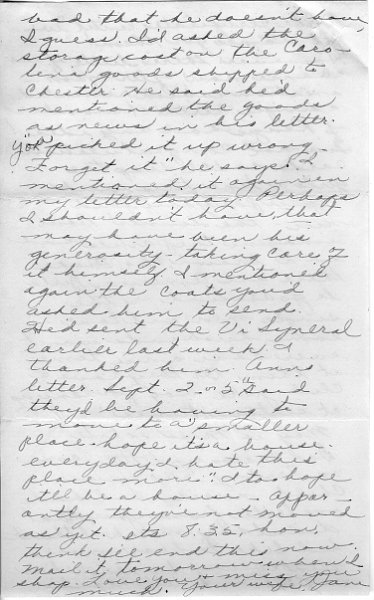 bad that he doesn't have,
I guess. I'd asked the
storage cost on the Caro-
lena goods shipped to
Chester. He said he'd
mentioned the goods
as news in his letter.
you picked it up wrong -
Forget it" he says. I
mentioned it again in
my letter today. Perhaps
I shouldn't have that
may have been his
generosity - taking care of
it himself. I mentioned
again the coats you'd
asked him to send.
He'd sent the Vi Syneral
earlier last week I
thanked him. Ann's
letter. Sept. 2 or 5th said
they'd be having to
move to a "smaller
place. hope it's a house.
everyday I hate this
place more." I to hope
it'll be a house - appar-
antly they're not moved
as yet. its 8:35, hon.
think I'll end this now.
Mail it tomorrow when I
shop. Love you & miss you
much. Your wife, Jane